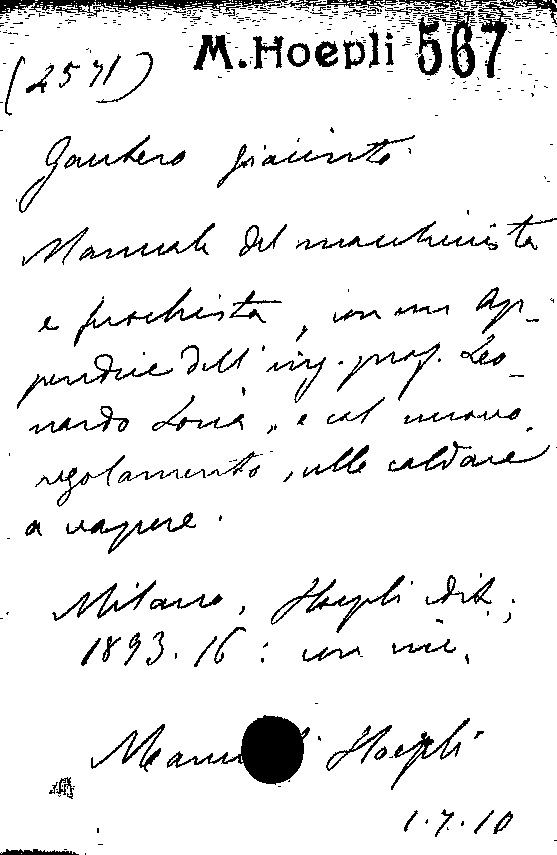 (2571) M. Hoepli 567
Gautero Giacinto
Manuale del macchinista
e fuochista, con una Ap-
pendice dell'ing. prof. Leo-
nardo Loria, e col nuovo
regolamento sulle caldaie
a vapore.
Milano, Hoepli edit.;
1893. 16: con inc.
Manu i Hoepli
1.7.10